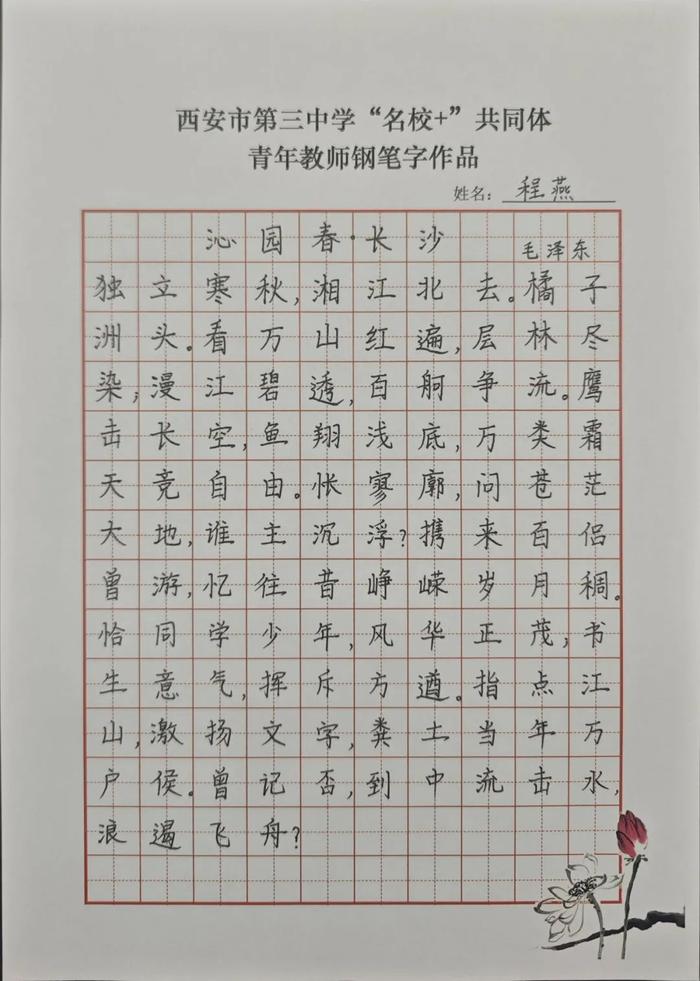 西安市第三中学“名校+”共同体
青年教师钢笔字作品
姓名：程燕
沁园春·长沙
毛泽东
独立寒秋，湘江北去。橘子
洲头。看万山红遍，层林尽
染；漫江碧透，百舸争流。鹰
击长空，鱼翔浅底，万类霜
天竞自由。怅寥廓，问苍茫
大地，谁主沉浮？携来百侣
曾游，忆往昔峥嵘岁月稠。
恰同学少年，风华正茂；书
生意气，挥斥方遒。指点江
山，激扬文字，粪土当年万
户侯。曾记否，到中流击水，
浪遏飞舟？